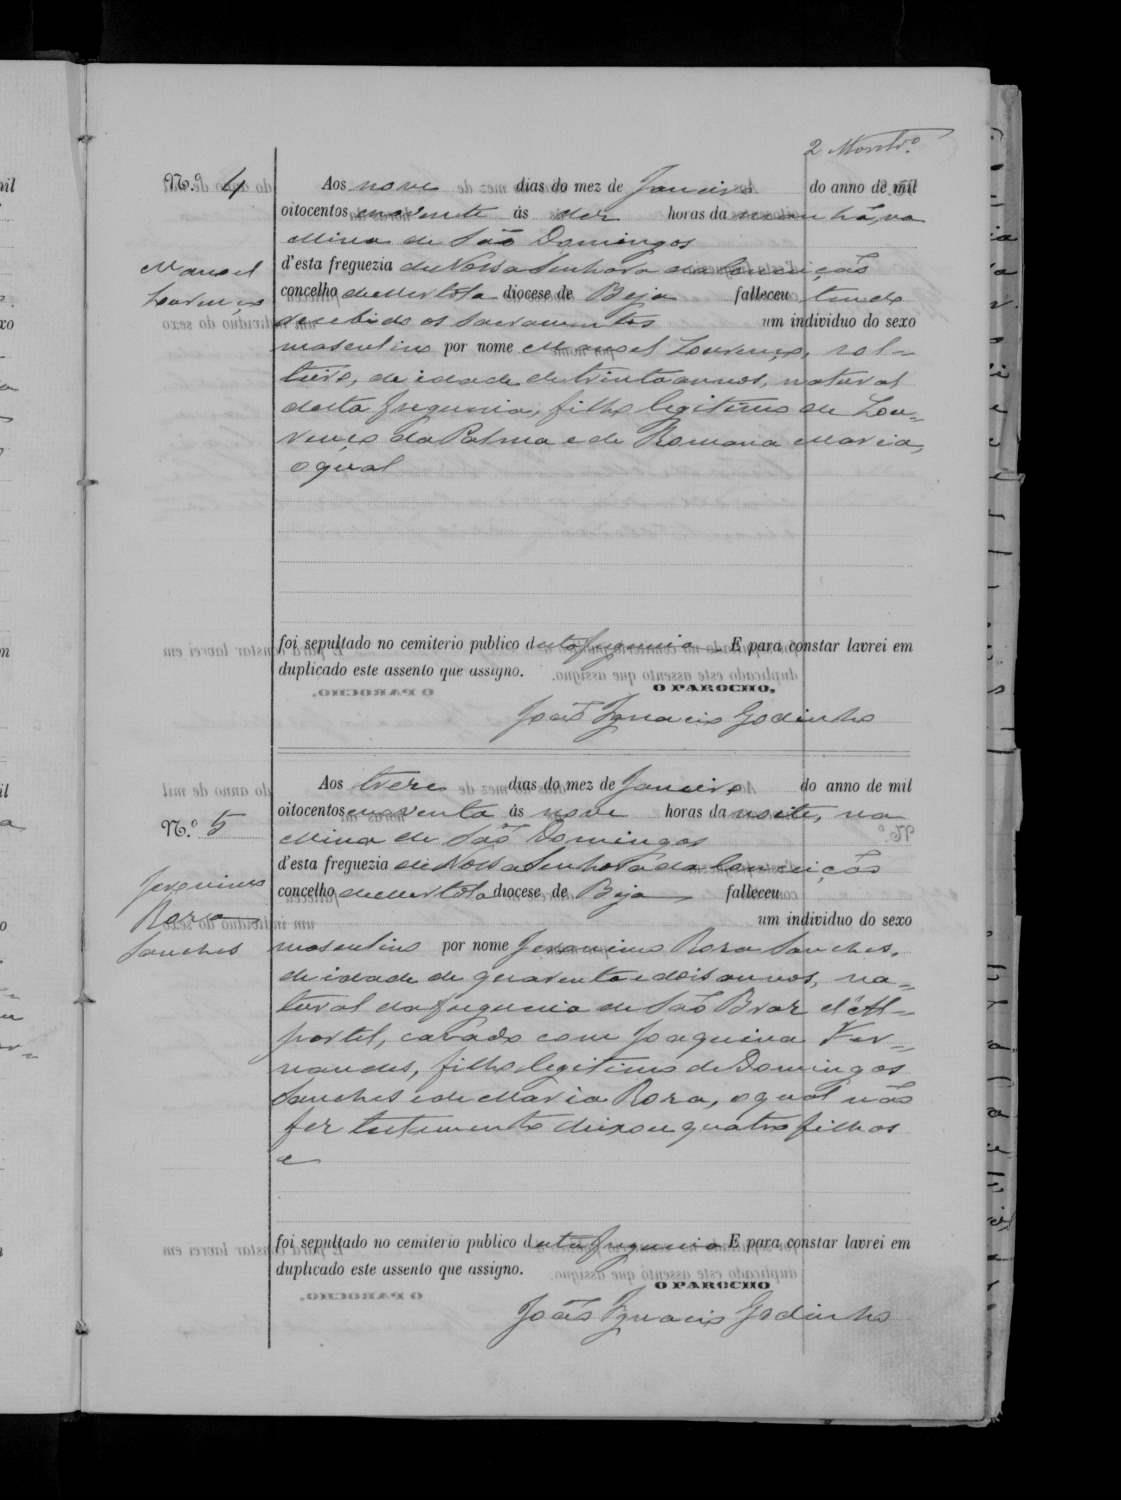 2 Montr.º
N.º 4
Manoel
Lourenço
Aos nove dias do mez de Janeiro do anno de mil
oitocentos e noventa ás dez horas da manhã, na
Mina de São Domingos
d'esta freguezia de Nossa Senhora da Conceição
concelho de Mertola diocese de Beja falleceu tendo
recebido os sacramentos um individuo do sexo
masculino por nome Manoel Lourenço, sol-
teiro, de idade de trinta annos, natural
desta freguezia, filho legitimo de Lou-
renço da Palma e de Romana Maria,
o qual
foi sepultado no cemiterio publico desta freguezia. E para constar lavrei em
duplicado este assento que assigno.
O PAROCHO,
João Ignacio Godinho
N.º 5
Jeronimo
Rosa
Sanches
Aos treze dias do mez de Janeiro do anno de mil
oitocentos e noventa ás nove horas da noite, na
Mina de São Domingos
d'esta freguezia de Nossa Senhora da Conceição
concelho de Mertola diocese de Beja falleceu
um individuo do sexo
masculino por nome Jeronimo Rosa Sanches,
de idade de quarenta e dois annos, na-
tural da freguezia de São Braz d'Al-
portel, casado com Joaquina Fer-
nandes, filho legitimo de Domingos
Sanches e de Maria Rosa, o qual não
fez testamento deixou quatro filhos
e
foi sepultado no cemiterio publico desta freguezia E para constar lavrei em
duplicado este assento que assigno.
O PAROCHO
João Ignacio Godinho